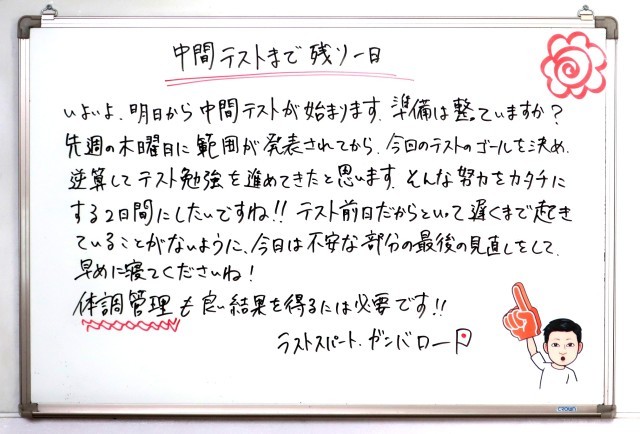 中間テストまで残り一日
いよいよ、明日から中間テストが始まります。準備は整っていますか？
先週の木曜日に範囲が発表されてから、今回のテストのゴールを決め、
逆算してテスト勉強を進めてきたと思います。そんな努力をカタチに
する2日間にしたいですね!! テスト前日だからといって遅くまで起き
ていることがないように、今日は不安な部分の最後の見直しをして、
早めに寝てくださいね！
体調管理も良い結果を得るには必要です!!
ラストスパート、ガンバロード
CROWN